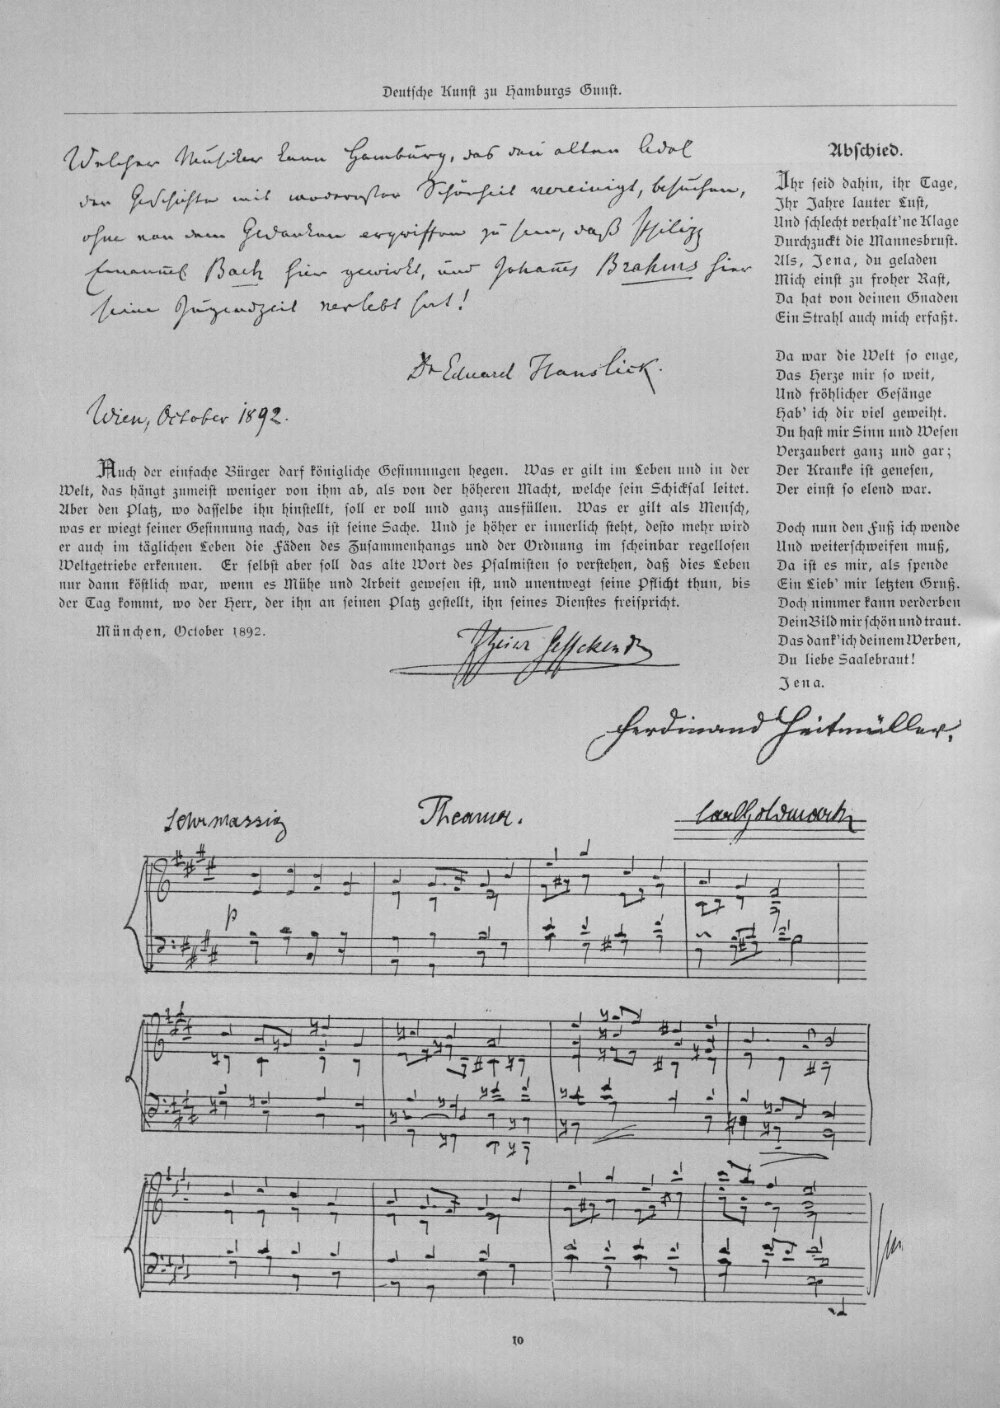 Deutsche Kunst zu Hamburgs Gunst.
Welcher Musiker kann Hamburg, das den alten Adel
der Geschichte mit modernster Schönheit vereinigt, besuchen,
ohne von dem Gedanken ergriffen zu sein, daß Philipp
Emanuel Bach hier gewirkt, und Johannes Brahms hier
seine Jugendzeit verlebt hat!
Dr Eduard Hanslick.
Wien, October 1892.
Auch der einfache Bürger darf königliche Gesinnungen hegen. Was er gilt im Leben und in der
Welt, das hängt zumeist weniger von ihm ab, als von der höheren Macht, welche sein Schicksal leitet.
Aber den Platz, wo dasselbe ihn hinstellt, soll er voll und ganz ausfüllen. Was er gilt als Mensch,
was er wiegt seiner Gesinnung nach, das ist seine Sache. Und je höher er innerlich steht, desto mehr wird
er auch im täglichen Leben die Fäden des Zusammenhangs und der Ordnung im scheinbar regellosen
Weltgetriebe erkennen. Er selbst aber soll das alte Wort des Psalmisten so verstehen, daß dies Leben
nur dann köstlich war, wenn es Mühe und Arbeit gewesen ist, und unentwegt seine Pflicht thun, bis
der Tag kommt, wo der Herr, der ihn an seinen Platz gestellt, ihn seines Dienstes freispricht.
München, October 1892.
Geffcken
Abschied.
Ihr seid dahin, ihr Tage,
Ihr Jahre lauter Lust,
Und schlecht verhalt'ne Klage
Durchzuckt die Mannesbrust.
Als, Jena, du geladen
Mich einst zu froher Rast,
Da hat von deinen Gnaden
Ein Strahl auch mich erfaßt.
Da war die Welt so enge,
Das Herze mir so weit,
Und fröhlicher Gesänge
Hab' ich dir viel geweiht.
Du hast mir Sinn und Wesen
Verzaubert ganz und gar;
Der Kranke ist genesen,
Der einst so elend war.
Doch nun den Fuß ich wende
Und weiterschweifen muß,
Da ist es mir, als spende
Ein Lieb' mir letzten Gruß.
Doch nimmer kann verderben
Dein Bild mir schön und traut.
Das dank' ich deinem Werben,
Du liebe Saalebraut!
Jena.
Ferdinand Heitmüller.
Thema.
Carl Goldmark
p
10